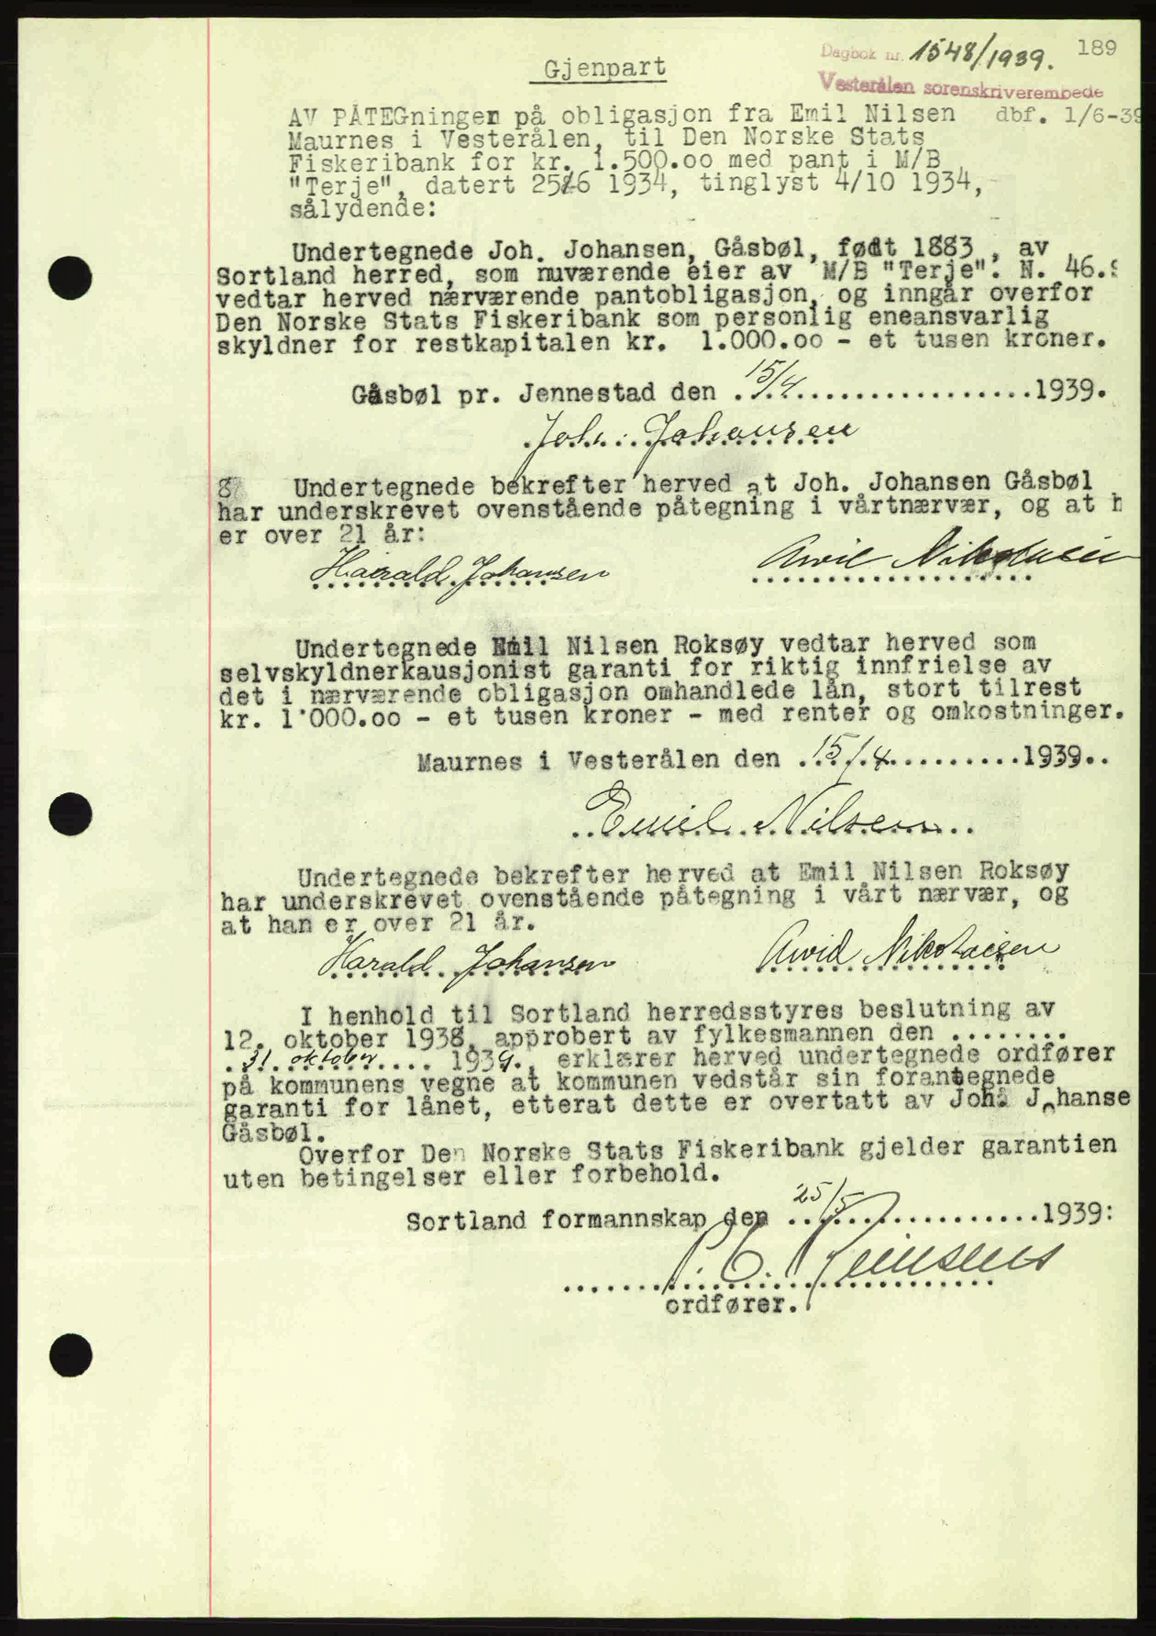 Dagbok nr. 1548/1939. 189
Gjenpart
Vesterålen sorenskriverembede
AV PÅTEGningen på obligasjon fra Emil Nilsen dbf. 1/6-39
Maurnes i Vesterålen, til Den Norske Stats
Fiskeribank for kr. 1.500.oo med pant i M/B
"Terje", datert 25/6 1934, tinglyst 4/10 1934,
sålydende:
Undertegnede Joh. Johansen, Gåsbøl, født 1883, av
Sortland herred, som nuværende eier av M/B "Terje". N. 46.
vedtar herved nærværende pantobligasjon, og inngår overfor
Den Norske Stats Fiskeribank som personlig eneansvarlig
skyldner for restkapitalen kr. 1.000.oo - et tusen kroner.
Gåsbøl pr. Jennestad den 15/4 1939.
Joh. Johansen
Undertegnede bekrefter herved at Joh. Johansen Gåsbøl
har underskrevet ovenstående påtegning i vårtnærvær, og at h
er over 21 år:
Harald Johansen Arvid Nikolaisen
Undertegnede Emil Nilsen Roksøy vedtar herved som
selvskyldnerkausjonist garanti for riktig innfrielse av
det i nærværende obligasjon omhandlede lån, stort tilrest
kr. 1'000.oo - et tusen kroner - med renter og omkostninger.
Maurnes i Vesterålen den 15/4 1939..
Emil Nilsen
Undertegnede bekrefter herved at Emil Nilsen Roksøy
har underskrevet ovenstående påtegning i vårt nærvær, og
at han er over 21 år.
Harald Johansen Arvid Nikolaisen
I henhold til Sortland herredsstyres beslutning av
12. oktober 1938, approbert av fylkesmannen den ........
31. oktober 1939., erklærer herved undertegnede ordfører
på kommunens vegne at kommunen vedstår sin forantegnede
garanti for lånet, etterat dette er overtatt av Joh. Johanse
Gåsbøl.
Overfor Den Norske Stats Fiskeribank gjelder garantien
uten betingelser eller forbehold.
Sortland formannskap den 25/5 1939:
P. C. Reinsnes
ordfører.